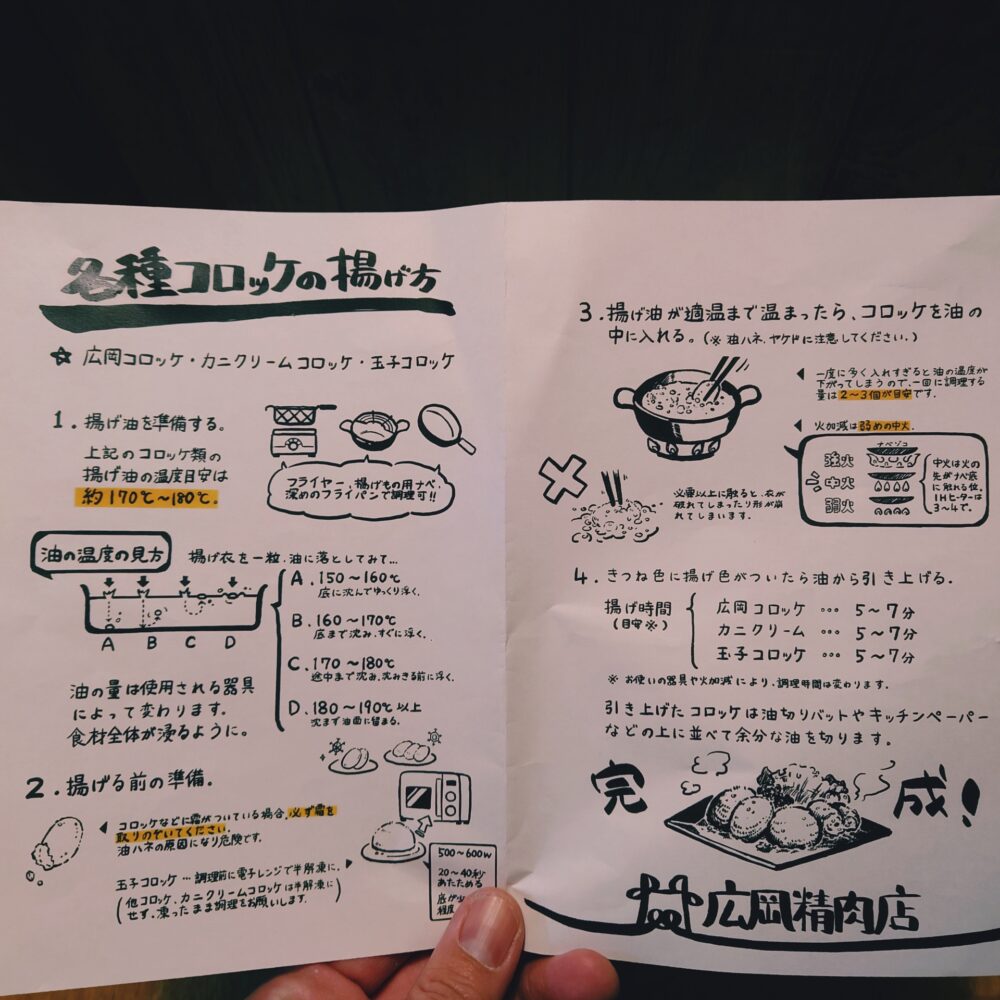 各種コロッケの揚げ方
☆ 広岡コロッケ・カニクリームコロッケ・玉子コロッケ
1. 揚げ油を準備する。
上記のコロッケ類の
揚げ油の温度目安は
約170℃~180℃.
フライヤー、揚げもの用ナベ、
深めのフライパンで調理可!!
油の温度の見方
揚げ衣を一粒、油に落としてみて…
A B C D
A. 150~160℃
底に沈んでゆっくり浮く.
B. 160~170℃
底まで沈み、すぐに浮く.
C. 170~180℃
途中まで沈み、沈みきる前に浮く.
D. 180~190℃以上
沈まず油面に留まる.
油の量は使用される器具
によって変わります。
食材全体が浸るように。
2. 揚げる前の準備.
コロッケなどに霜がついている場合、必ず霜を
取りのぞいてください.
油ハネの原因になり危険です.
玉子コロッケ…調理前に電子レンジで半解凍に.
(他コロッケ、カニクリームコロッケは半解凍に
せず、凍ったまま調理をお願いします.)
500~600W
20~40秒
あたためる
程度
3. 揚げ油が適温まで温まったら、コロッケを油の
中に入れる。(※ 油ハネ、ヤケドに注意してください.)
一度に多く入れすぎると油の温度が
下がってしまうので、一回に調理する
量は2~3個が目安です.
火加減は弱めの中火.
ナベゾコ
強火
中火
弱火
中火は火の
先がナベ底
に触れる位.
IHヒーターは
3~4で.
必要以上に触ると、衣が
破れてしまったり形が崩
れてしまいます.
4. きつね色に揚げ色がついたら油から引き上げる.
揚げ時間
(目安※)
広岡コロッケ … 5~7分
カニクリーム … 5~7分
玉子コロッケ … 5~7分
※ お使いの器具や火加減により、調理時間は変わります.
引き上げたコロッケは油切りバットやキッチンペーパー
などの上に並べて余分な油を切ります.
完成!
広岡精肉店